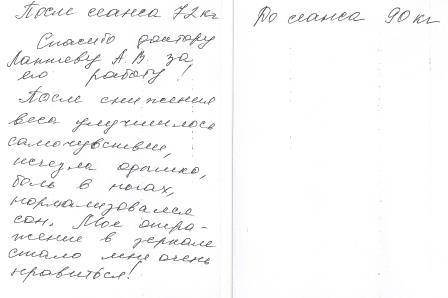 После сеанса 72 кг
Спасибо доктору
Лаптеву А.В. за
его работу!
После снижения
веса улучшилось
самочувствие,
исчезла одышка,
боль в ногах,
нормализовался
сон. Мое отра-
жение в зеркале
стало мне очень
нравиться!
До сеанса 90 кг